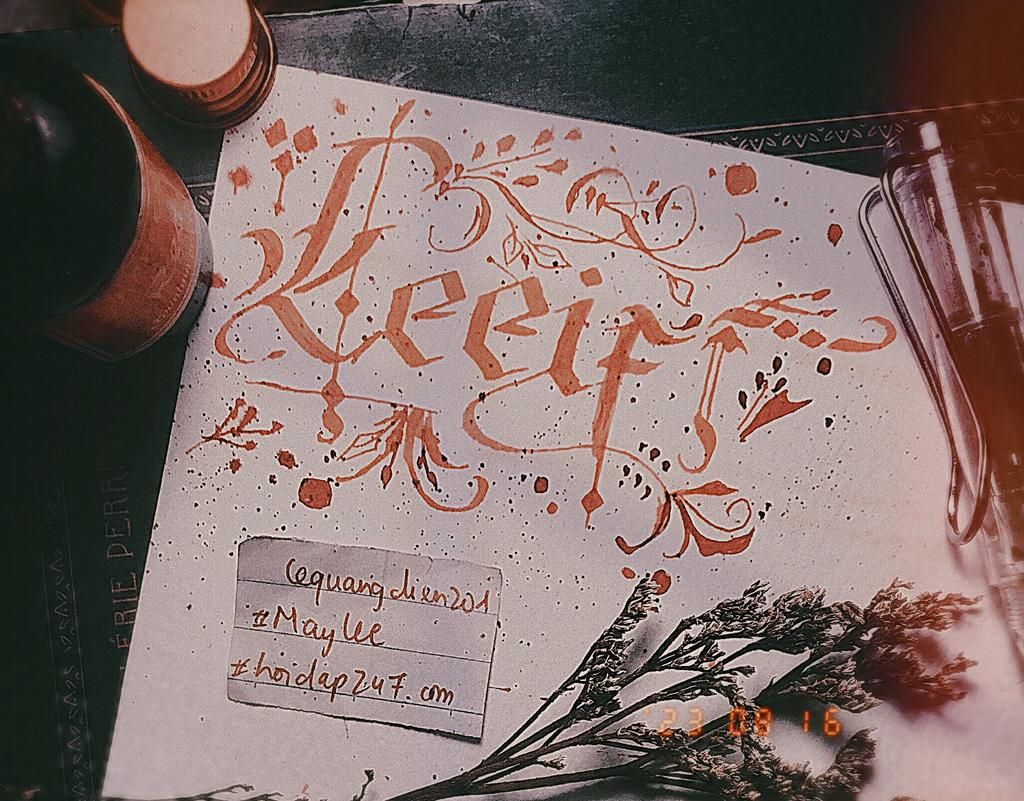 Keeii
@quangdien201
#MayLee
#hoidap247.com
ÉRIE PERRI
'23 08 16